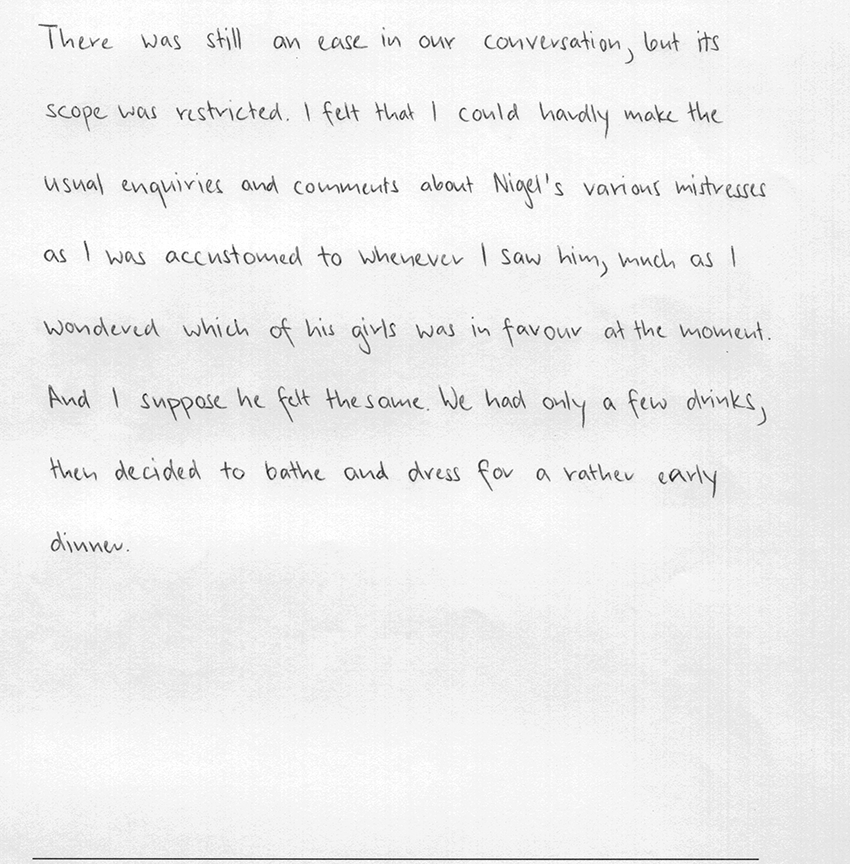 There was still an ease in our conversation, but its
scope was restricted. I felt that I could hardly make the
usual enquiries and comments about Nigel's various mistresses
as I was accustomed to whenever I saw him, much as I
wondered which of his girls was in favour at the moment.
And I suppose he felt the same. We had only a few drinks,
then decided to bathe and dress for a rather early
dinner.